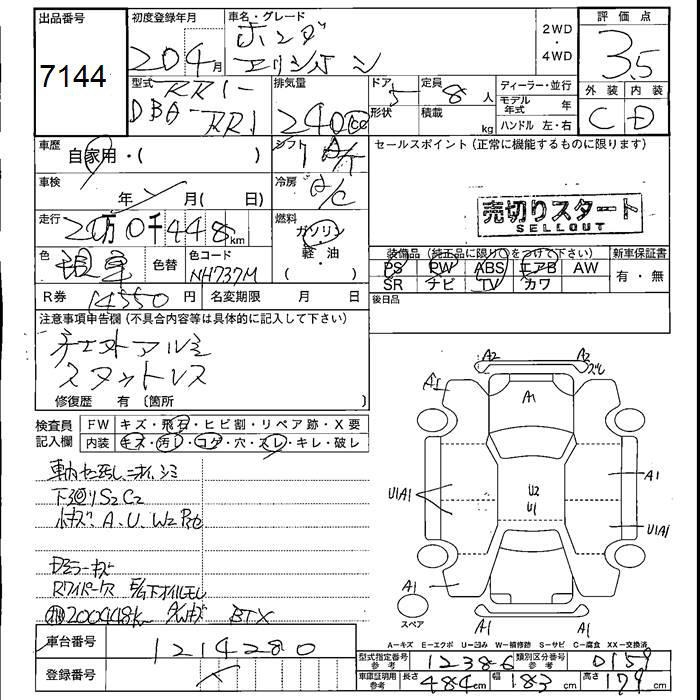 出品番号
7144
初度登録年月
20 4月
車名・グレード
ホンダ
エリシオン
2WD
・
4WD
評価点
3.5
外装 内装
C D
型式
RR1-
DBA-RR1
排気量
2400cc
ドア 5
形状
定員 8 人
積載 kg
ディーラー・並行
モデル年式 年
ハンドル 左・右
車歴
自家用・( )
シフト
車検 年 月( 日)
冷房 A/C
セールスポイント (正常に機能するものに限ります)
売切りスタート
SELLOUT
走行 20万0千448km
燃料
ガソリン
軽・油
( )
色 銀 色替 色コード NH737M
R券 14550円 名変期限 月 日
装備品 (純正品に限り○をつけて下さい)
PS PW ABS エアB AW
SR ナビ TV カワ
新車保証書
有・無
後日品
注意事項申告欄 (不具合内容等は具体的に記入して下さい)
アルミ
スタットレス
修復歴 有 〔箇所 〕
検査員
記入欄
FW キズ・飛石・ヒビ割・リペア跡・X要
内装 キズ・汚れ・コゲ・穴・スレ・キレ・破レ
下廻りS2C2
A.U.W2
Dミラーキズ
200448k BTX
A2 A2
A1 A1
A1
U1A1 U2
U1 U1A1
A1
スペア
A1 A1
A-キズ E-エクボ U-凹み W-補修跡 S-サビ C-腐食 XX-交換済
車台番号 1214280
登録番号
型式指定番号 参考 12386 類別区分番号 参考 0159
車庫証明用 参考 長さ 484cm 幅 183cm 高さ 179cm